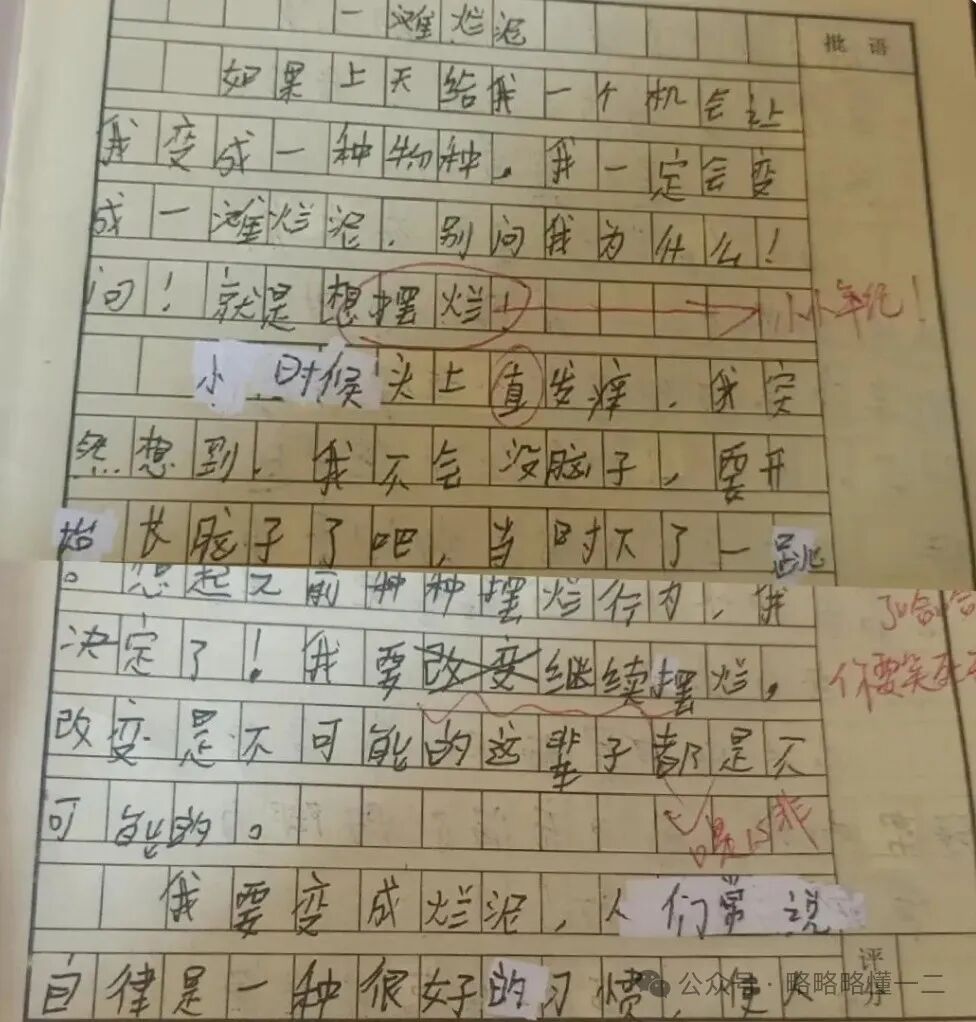 一滩烂泥
批语
如果上天给我一个机会让
我变成一种物种，我一定会变
成一滩烂泥，别问我为什么！
问！就是想摆烂！
小小年纪！
小时候头上直发痒，我突
然想到，我不会没脑子，要开
始长脑子了吧，当时下了一跳
。想起之前种种摆烂行为，我
了哈哈
决定了！我要改变继续摆烂，
你要笑死
改变是不可能的这辈子都是不
可能的。
我要变成烂泥，人们常说
自律是一种很好的习惯，使人
评分
公众号·略略略懂一二